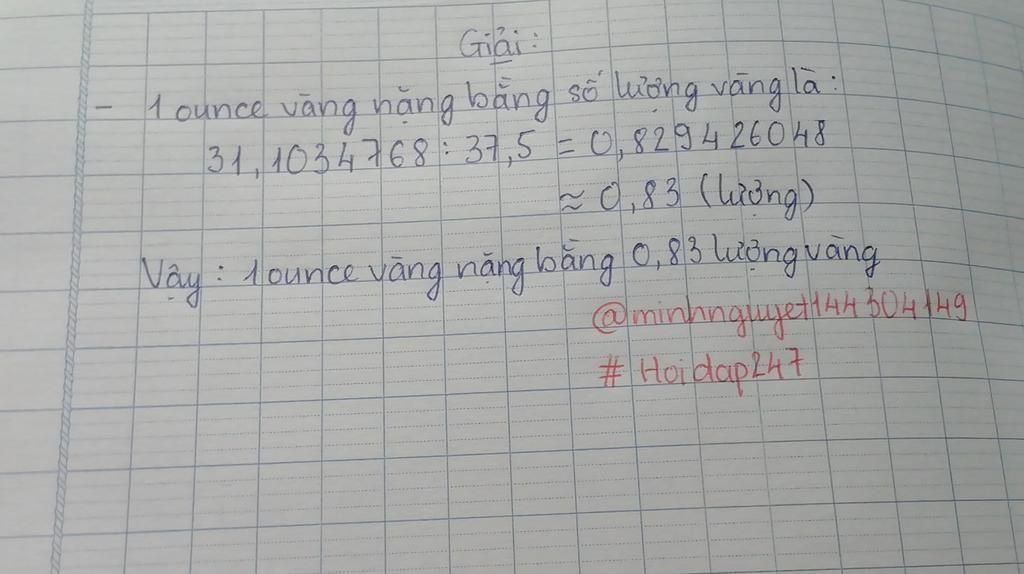 Giải:
- 1 ounce vàng nặng bằng số lượng vàng là:
31,1034768 : 37,5 = 0,829426048
≈ 0,83 (lượng)
Vậy : 1 ounce vàng nặng bằng 0,83 lượng vàng
@minhnguyet144304149
# Hoidap247